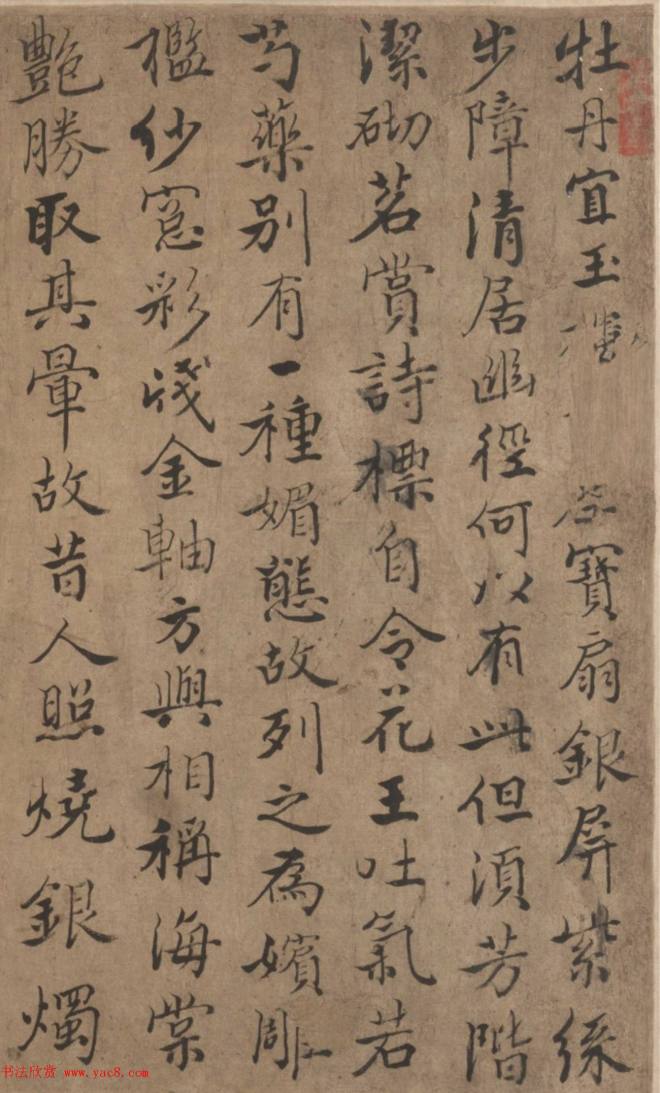 牡丹宜玉寶扇銀屏紫絲
步障清居幽徑何以有此但須芳階
潔砌茗賞詩標自令花王吐氣若
芍藥別有一種媚態故列之為嬪雕
檻紗窓彩牋金軸方與相稱海棠
艷勝取其暈故昔人照燒銀燭
书法欣赏 www.yac8.com